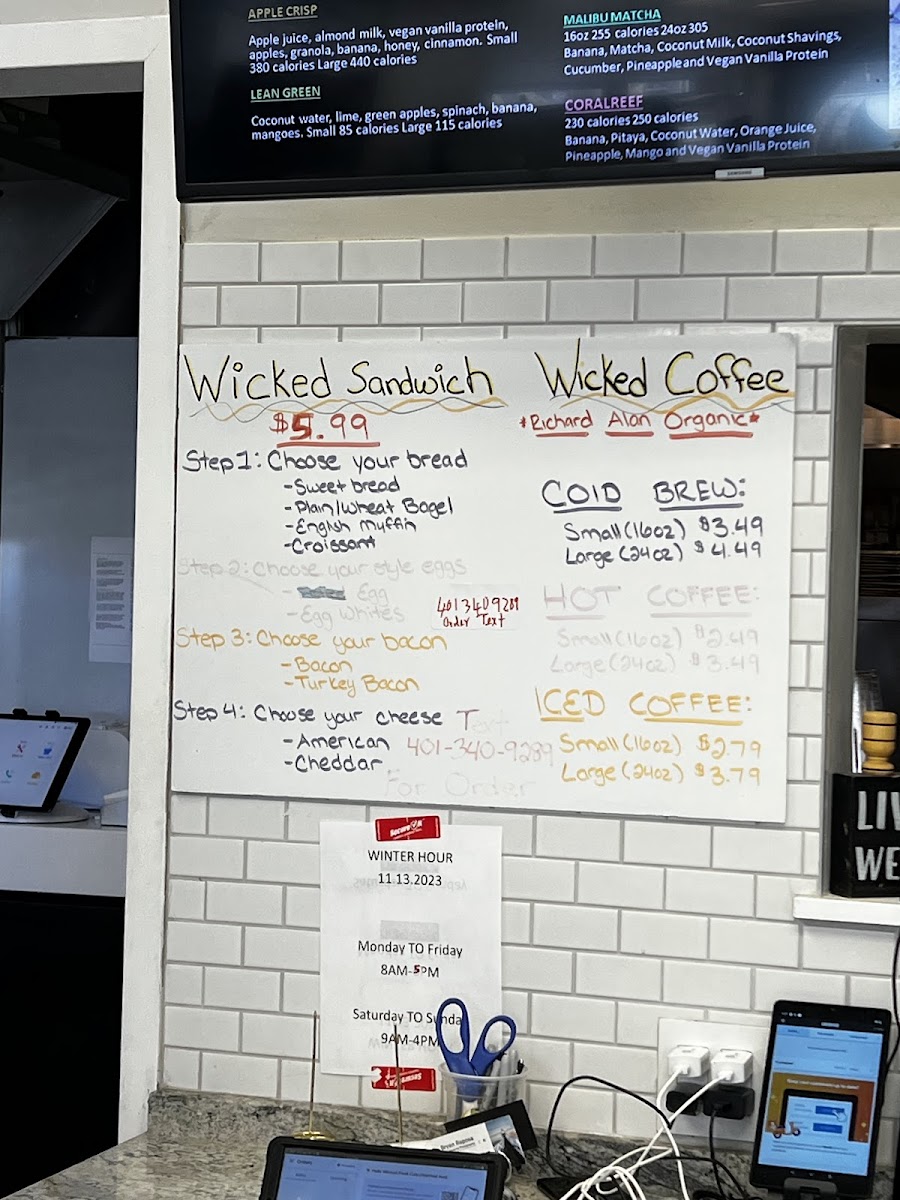 APPLE CRISP
Apple juice, almond milk, vegan vanilla protein,
apples, granola, banana, honey, cinnamon. Small
380 calories Large 440 calories
LEAN GREEN
Coconut water, lime, green apples, spinach, banana,
mangoes. Small 85 calories Large 115 calories
MALIBU MATCHA
16oz 255 calories 24oz 305
Banana, Matcha, Coconut Milk, Coconut Shavings,
Cucumber, Pineapple and Vegan Vanilla Protein
CORALREEF
230 calories 250 calories
Banana, Pitaya, Coconut Water, Orange Juice,
Pineapple, Mango and Vegan Vanilla Protein
SAMSUNG
Wicked Sandwich
$5.99
Step 1: Choose your bread
-Sweet bread
-Plain/Wheat Bagel
-English Muffin
-Croissant
Step 2: Choose your style eggs
- Egg
-Egg Whites
4013409289
Order Text
Step 3: Choose your bacon
-Bacon
-Turkey Bacon
Step 4: Choose your cheese
-American
-Cheddar
Text
401-340-9289
For Order
Wicked Coffee
*Richard Alan Organic*
COLD BREW:
Small (16oz) $3.49
Large (24oz) $4.49
HOT COFFEE:
Small (16oz) $2.49
Large (24oz) $3.49
ICED COFFEE:
Small (16oz) $2.79
Large (24oz) $3.79
LIV
WE
WINTER HOUR
11.13.2023
Monday TO Friday
8AM-5PM
Saturday TO Sunda
9AM-4PM